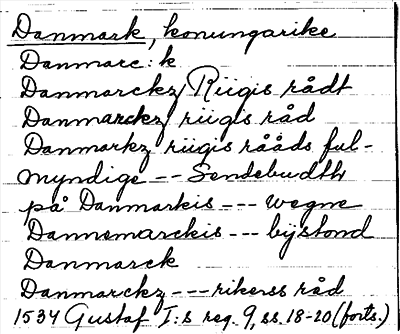 Danmark, konungarike
Danmarc: k
Danmarckz Riigis rådt
Danmarckz riigis råd
Danmarkz riigis rååds ful-
myndige -- Sendebudth
på Danmarkis --- wegne
Dannemarckis --- bijstond
Danmarck
Danmarckz --- rikerss råd
1534 Gustaf I:s reg. 9, ss. 18-20 (forts.)